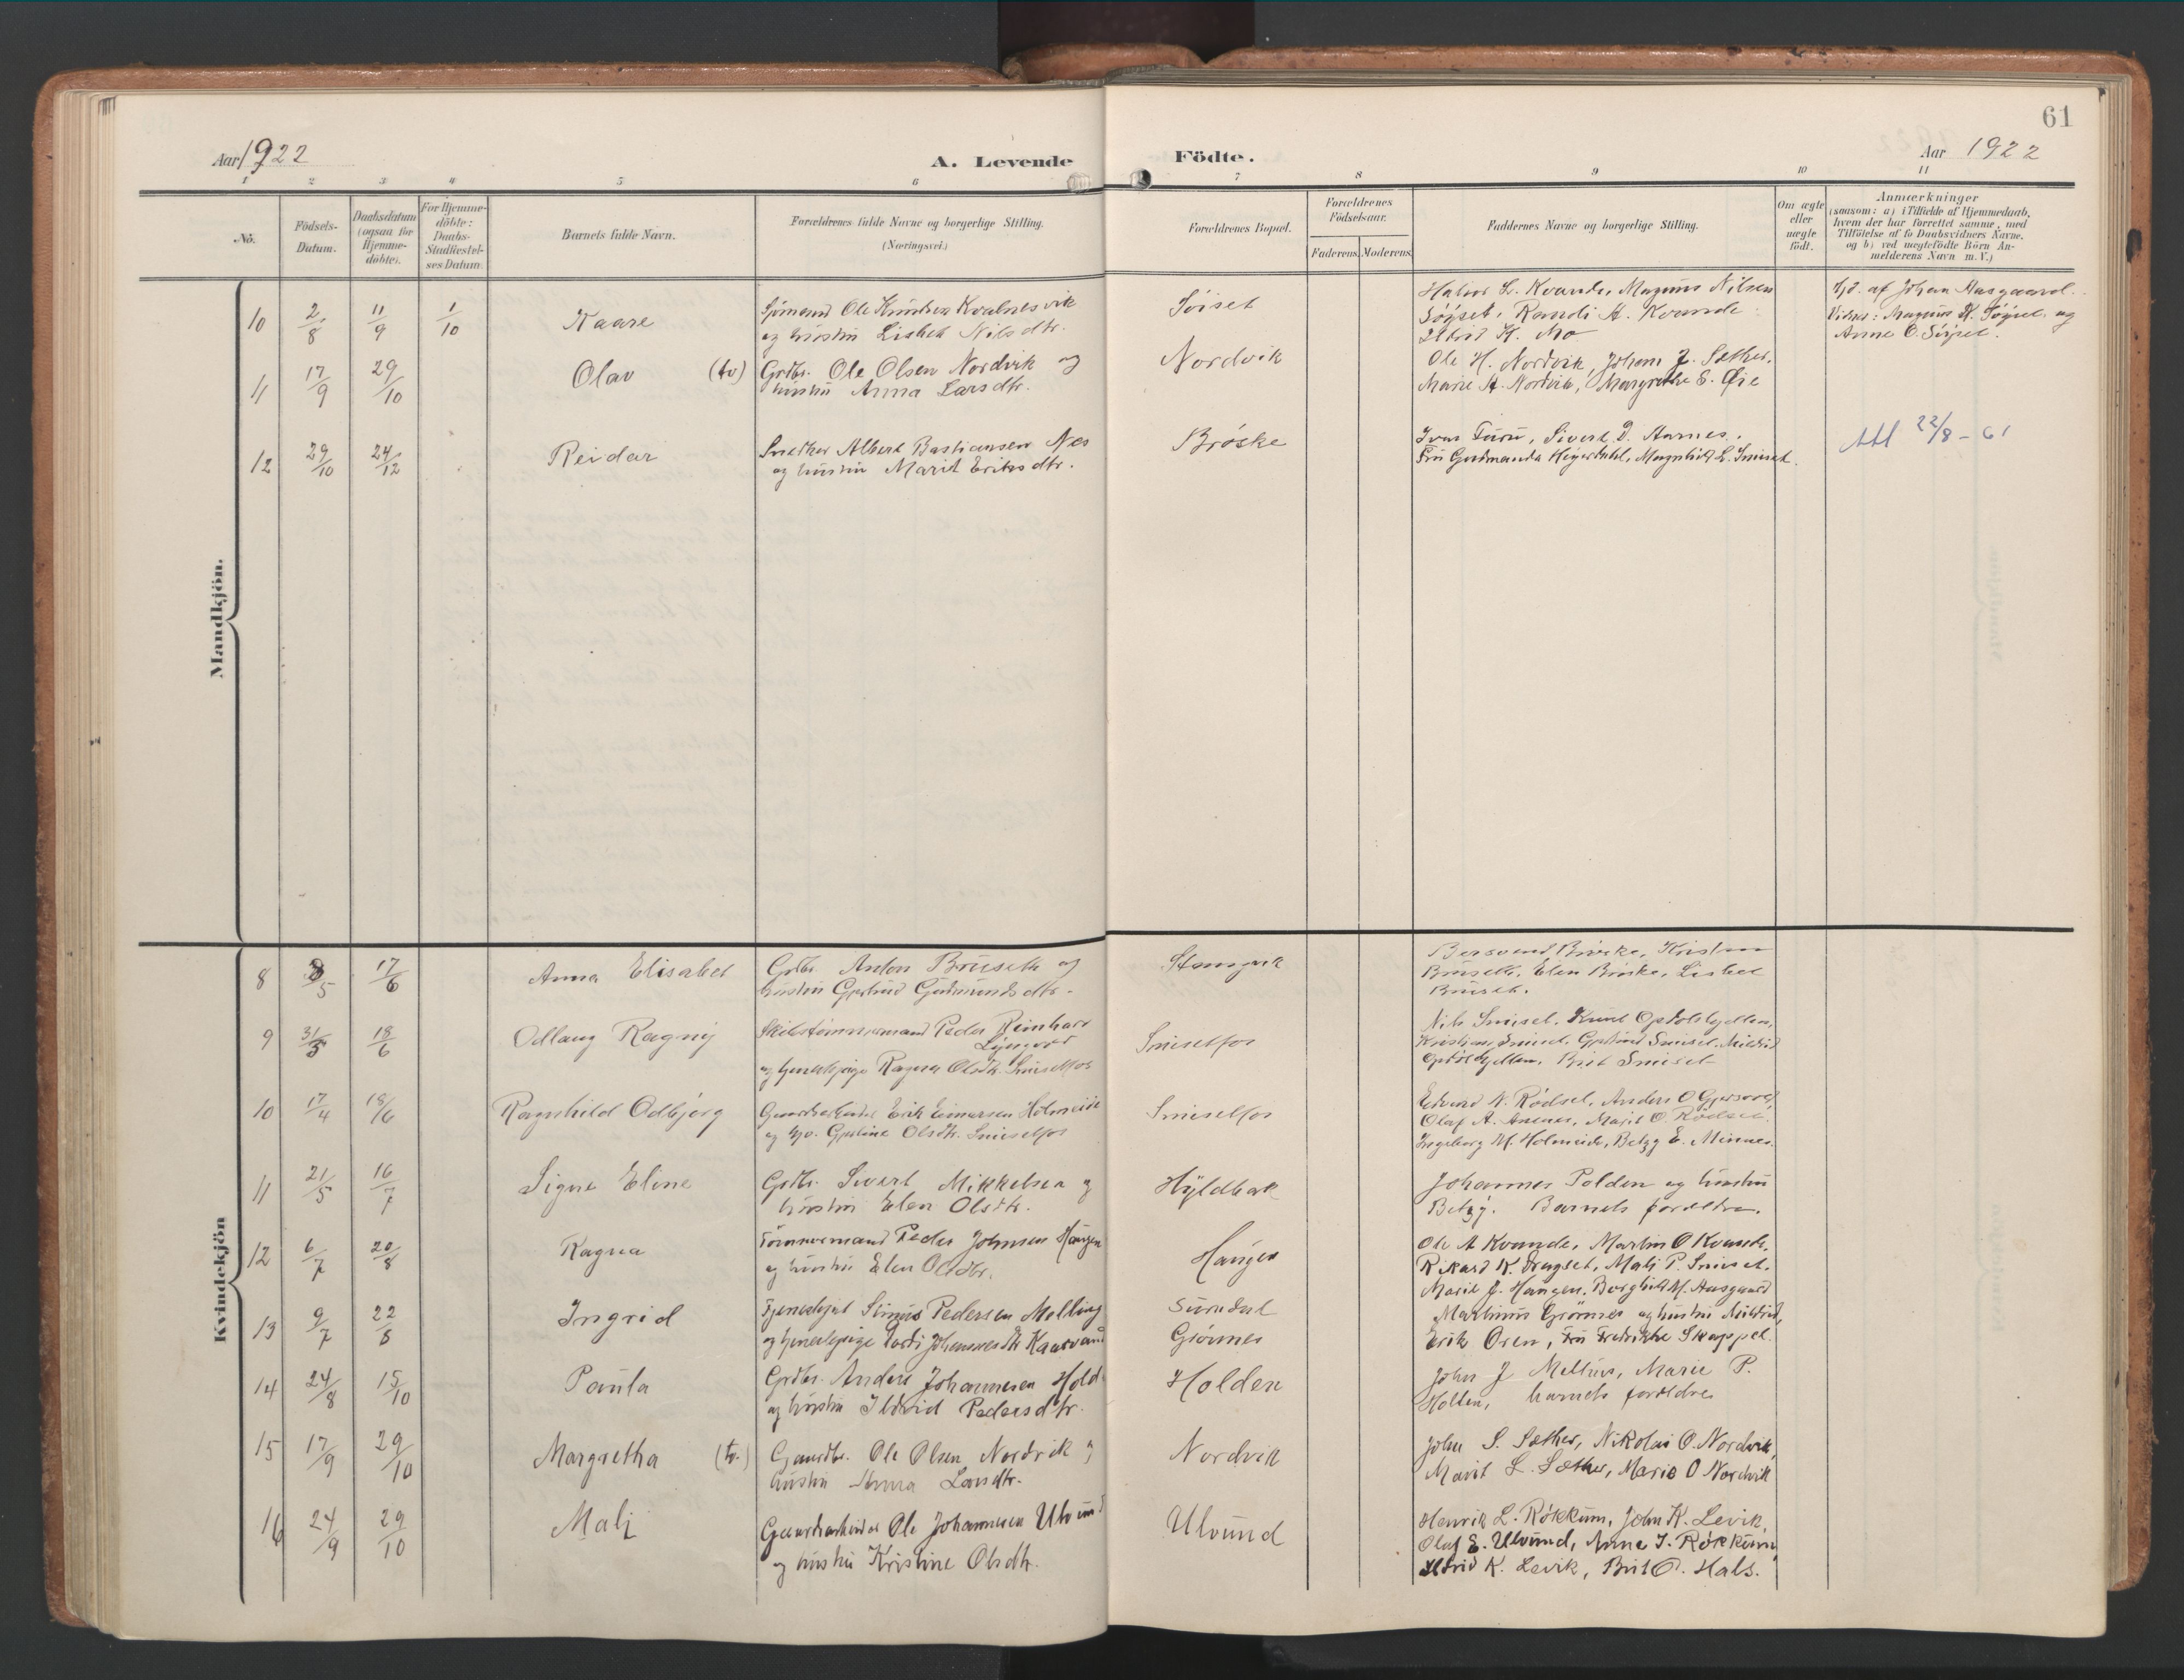 61
Aar 1922
A. Levende Födte.
Aar 1922
1 2 3 4 5 6 7 8 9 10 11
No.
Födsels-
Datum.
Daabsdatum
(ogsaa for
Hjemme-
döbte).
For Hjemme-
döbte:
Daabs-
Stadfæstel-
ses-Datum.
Barnets fulde Navn.
Forældrenes fulde Navne og borgerlige Stilling.
(Næringsvei.)
Forældrenes Bopæl.
Forældrenes
Födselsaar.
Faderens. Moderens.
Faddernes Navne og borgerlige Stilling.
Om ægte
eller
uægte
födt.
Anmærkninger
(saasom: a) i Tilfælde af Hjemmedaab,
hvem der har forrettet samme, med
Tilföielse af to Daabsvidners Navne,
og b) ved uægtefödte Börn An-
melderens Navn m. V.)
Mandkjön.
10 2/8 11/9 1/10 Kaare
Sjömand Ole Knudsen Kvalnesvik
og hustru Lisbet Nilsdtr.
Söiset
Halvor L. Kvande, Magnus Nilsen
Söiset, Randi A. Kvande
Ildrid K. Mo
Hjd. af Johan Aasgaard.
Vidner: Magnus N. Söiset og
Anne O. Söiset.
11 17/9 29/10 Olav (tv)
Grdbr. Ole Olsen Nordvik og
hustru Anna Larsdtr.
Nordvik
Ole H. Nordvik, Johan J. Sæther,
Marie A. Nordvik, Margrethe E. Øie
12 29/10 24/12 Reidar
Snedker Albert Bastiansen Næs
og hustru Marit Eriksdtr.
Bröske
Ivar Furu, Sivert D. Aarnes,
Fru Gudmanda Heyerdahl, Magnhild E. Smiset.
Att 22/8 - 61
Kvindekjön
8 /5 17/6 Anna Elisabet
Grdbr. Anton Bruseth og
hustru Gjertrud Gudmundsdtr.
Stangvik
Bersvend Bröske, Kristen
Bruseth, Elen Bröske, Lisbet
Bruset.
9 31/5 18/6 Odlaug Ragny
Skibstömmermand Peder Reinhard
Lyngvær
og tjenestepige Ragna Olsdtr. Smisetfos
Smisetfos
Nils Smiset, Knut
Kristian Smiset, Gjertrud Smiset, Mildrid
Brit Smiset
10 17/4 18/6 Ragnhild Odbjørg
Gaardarbeider Erik Einarsen Holmeide
og hv. Gjertine Olsdtr. Smisetfos
Smisetfos
Edvard N. Rödset, Anders O
Olaf A. Marit O. Rödset.
Ingeborg M. Holmeide, Betzy E. Minnes.
11 21/5 16/7 Signe Eline
Grdbr. Sivert Mikkelsen og
hustru Elen Olsdtr.
Hyldbak
Johannes Polden og hustru
Betzy. Barnets forældre.
12 6/7 20/8 Ragna
Tömmermand Peder Johnsen Haugen
og hustru Elen Olsdtr.
Haugen
Ole A Kvande, Martin O Kvande,
Rikard K. Drugset, Mali P. Smiset,
Marie J. Haugen, Borghild M. Aasgaard
13 9/7 22/8 Ingrid
Tjenestegut Pedersen Melling
og tjenestepige Johannesdtr. Kaarvand
Surndal
Grönnes
Martinus Grönnes og hustru Mildrid,
Erik Oren, Fru Fredrikke Skappel.
14 24/8 15/10 Paula
Grdbr. Anders Johannesen Hold
og hustru Ildrid Pedersdtr.
Holden
John J Mellius, Marie P.
Holten, barnets forældre
15 17/9 29/10 Margretha (tv.)
Gaardbr. Ole Olsen Nordvik og
hustru Anna Larsdtr.
Nordvik
John S. Sæther, Nikolai O. Nordvik,
Marit L. Sæther, Marie O Nordvik
16 24/9 29/10 Mali
Gaardarbeider Ole Johannesen Ulvund
og hustru Kristine Olsdtr.
Ulvund
Henrik L. Røkkum, John K. Levik,
Oluf E. Ulvund, Anne J. Røkkum
Ildrid K. Levik, Brit O. Hals.